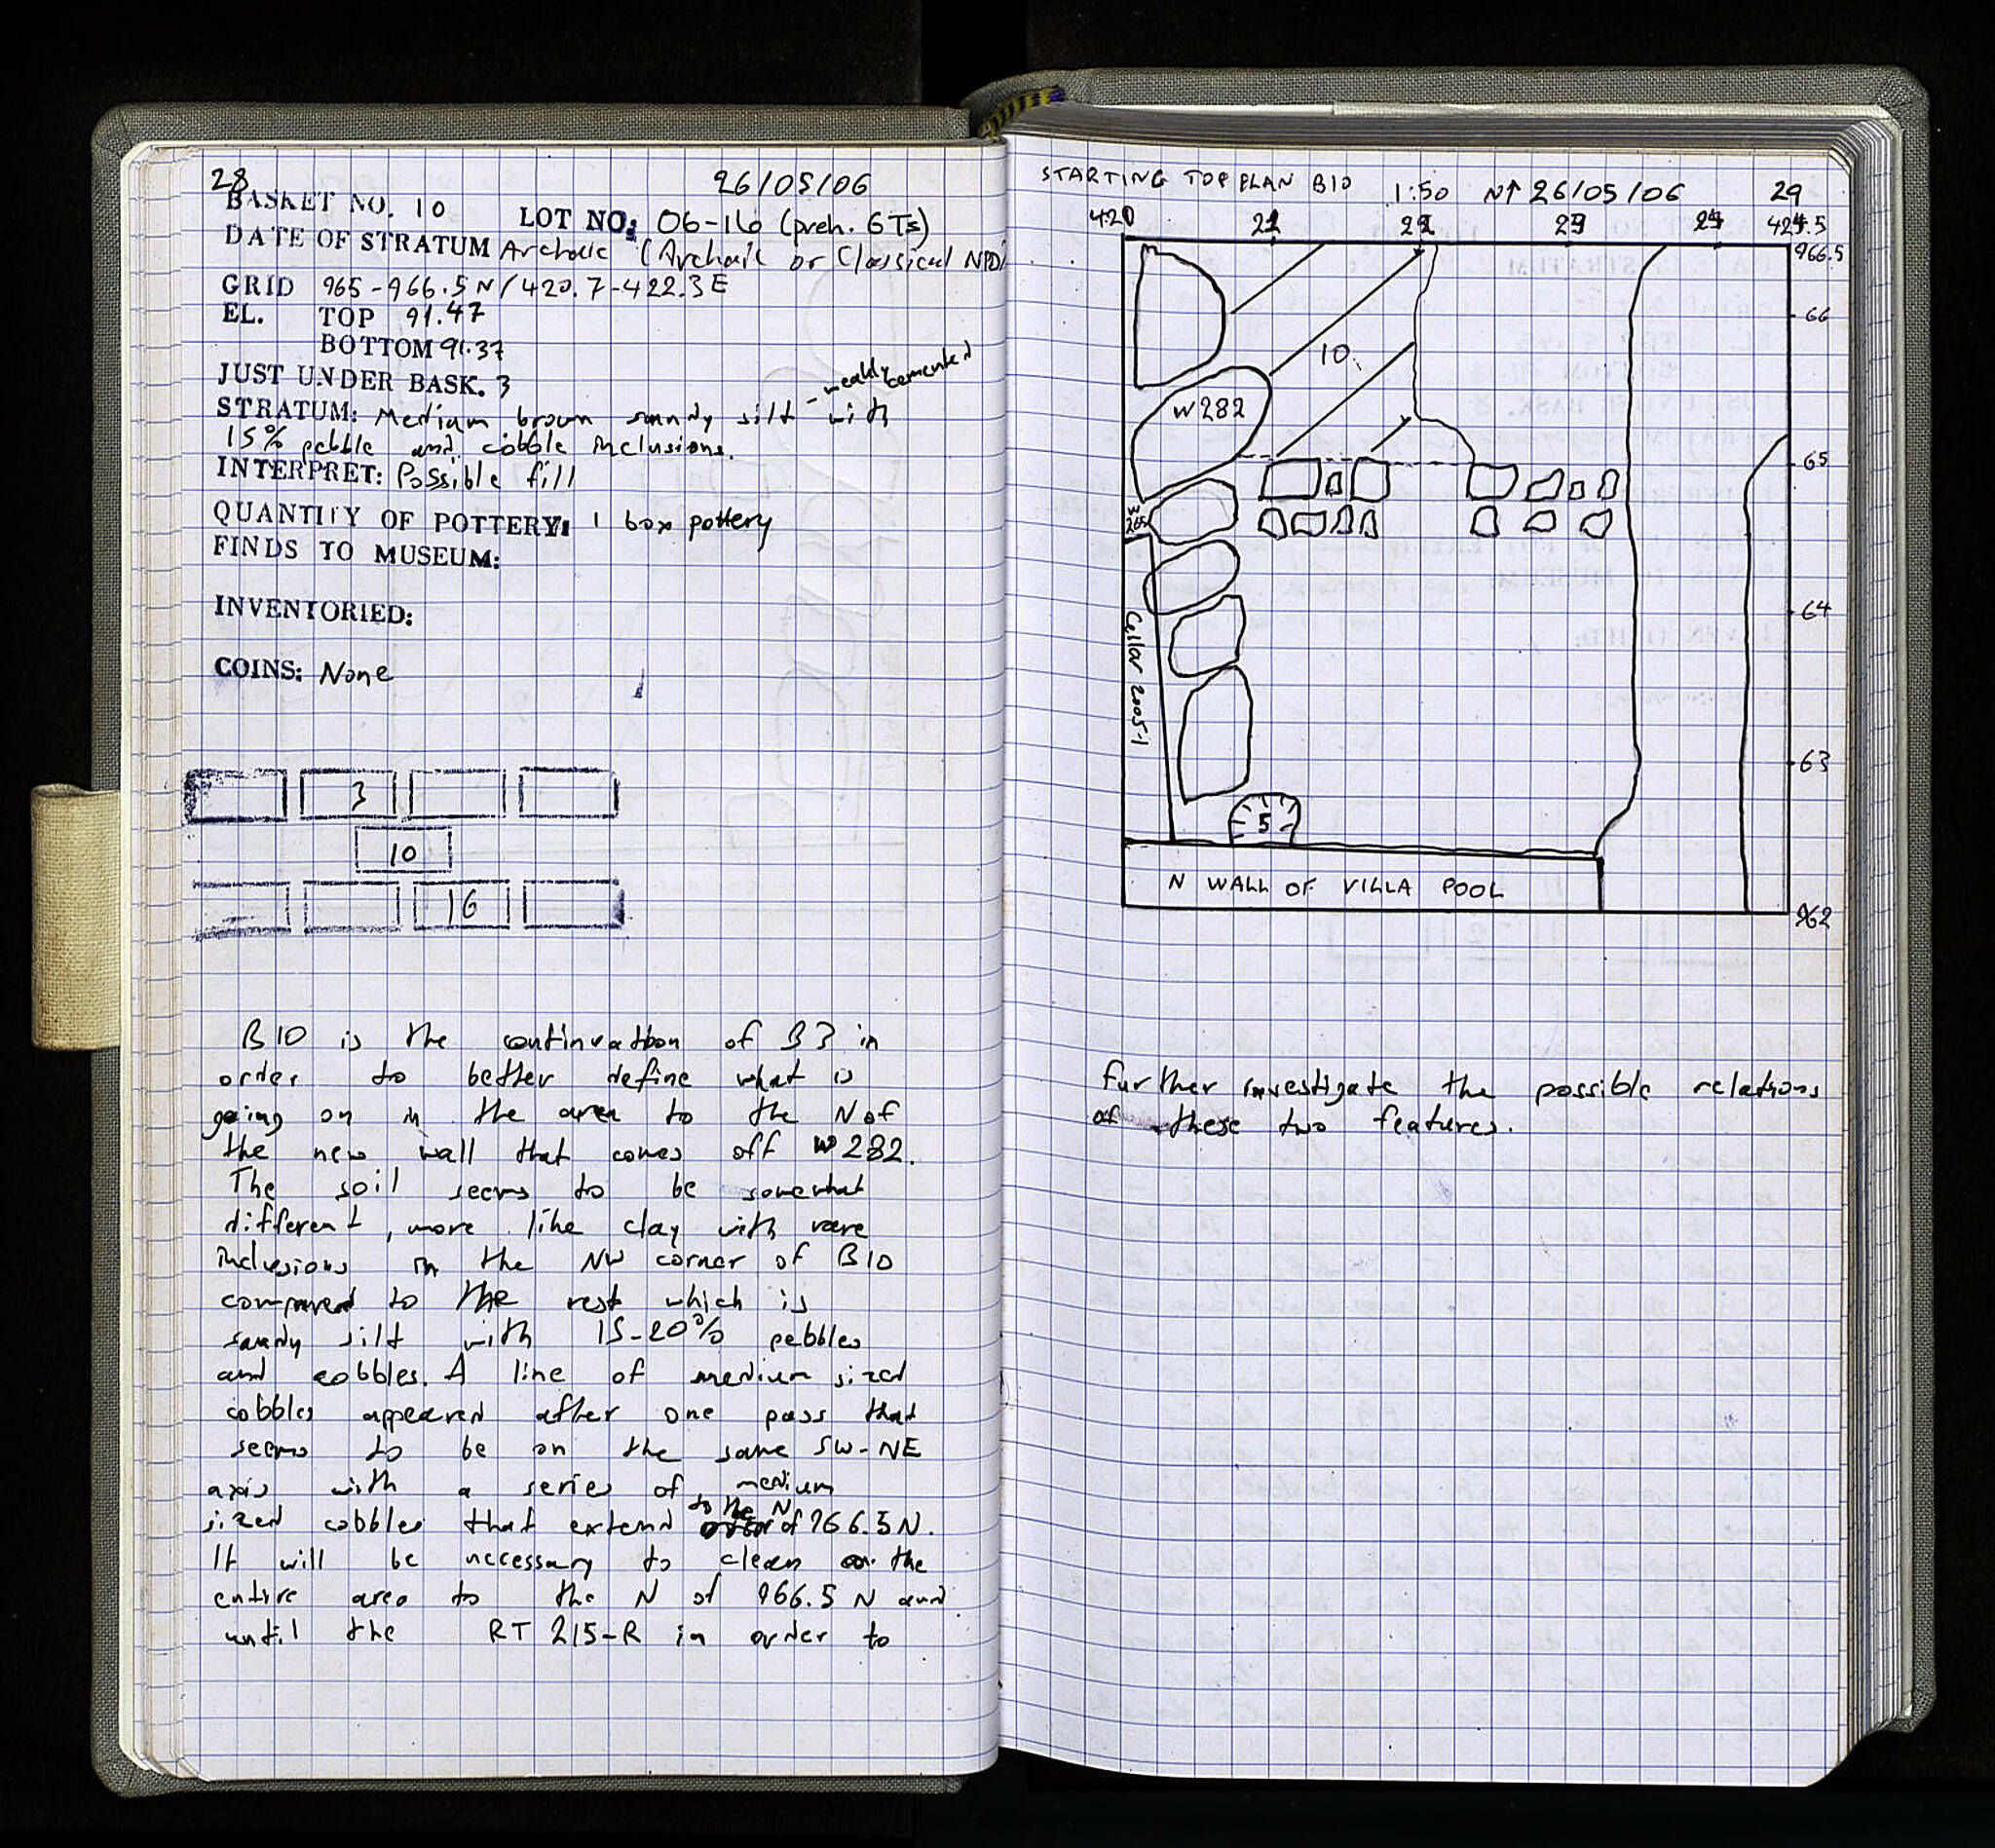 28
26/05/06
BASKET NO. 10 LOT NO: 06-16 (preh. 6 Ts)
DATE OF STRATUM Archaic (Archaic or Classical NPD)
GRID 965-966.5 N/420.7-422.3 E
EL. TOP 91.47
BOTTOM 91.37
JUST UNDER BASK. 3
STRATUM: Medium brown sandy silt - weakly cemented with
15% pebble and cobble inclusions.
INTERPRET: Possible fill
QUANTITY OF POTTERY: 1 box pottery
FINDS TO MUSEUM:
INVENTORIED:
COINS: None
3
10
16
B10 is the continuation of B3 in
order to better define what is
going on in the area to the N of
the new wall that comes off W282.
The soil seems to be somewhat
different, more like clay with rare
inclusions in the NW corner of B10
compared to the rest which is
sandy silt with 15-20% pebbles
and cobbles. A line of medium sized
cobbles appeared after one pass that
seems to be on the same SW-NE
axis with a series of medium
sized cobbles that extend to the N of 966.5 N.
It will be necessary to clean the
entire area to the N of 966.5 N and
until the RT 215-R in order to
STARTING TOP PLAN B10 1:50 N↑ 26/05/06 29
420 21 22 23 24 424.5
966.5
66
10
W282
65
64
Cellar 2005-1
63
5
N WALL OF VILLA POOL
962
further investigate the possible relations
of these two features.